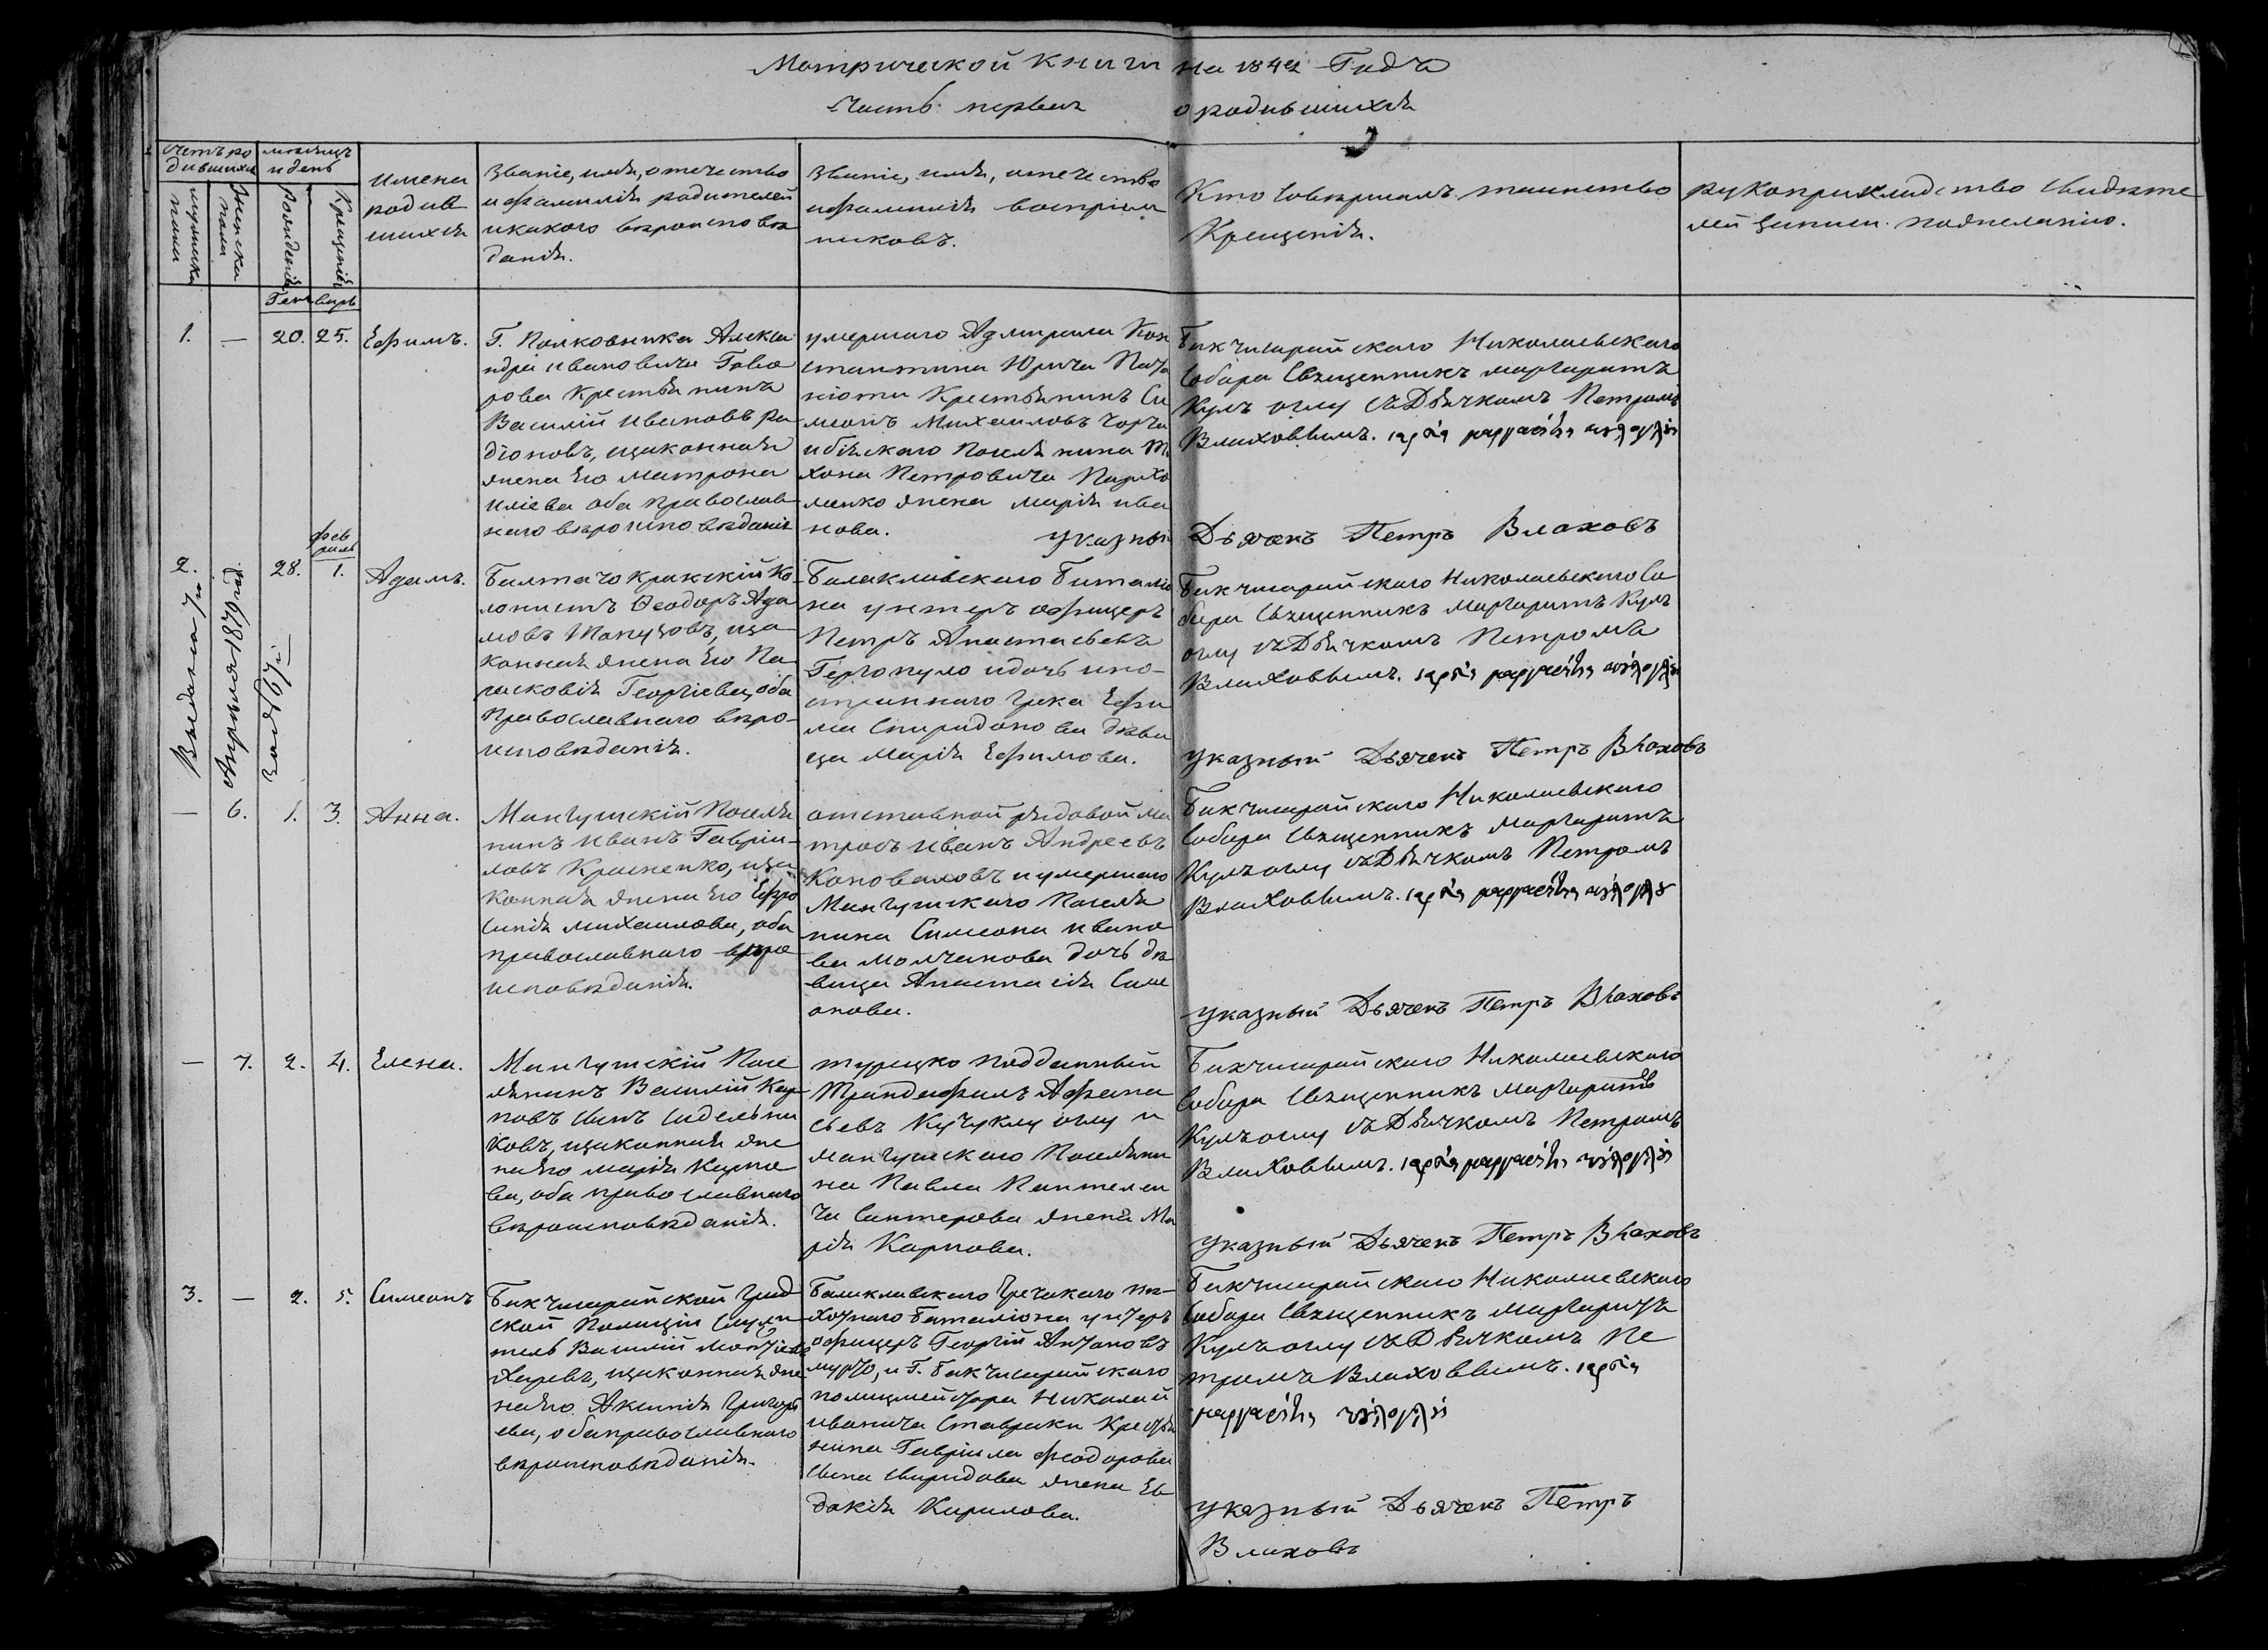 Метрической книги на 1842 Годъ
Часть первая о родившихся
Счетъ ро
дившихся
мужеска
пола
женска
пола
месяцъ
и день
Рожденія
Крещенія
Имена
родив
шихся
Званіе, имя, отечество
и фамилія родителей
и какого вѣроисповѣ
данія.
Званіе, имя, отечество
и фамилія воспріем
никовъ.
Кто совершалъ таинство
Крещенія.
рукоприкладство свидѣте
лей записи по желанію.
Генварь
1. — 20. 25. Ефимъ.
Г. Полковника Алекса
ндра Ивановича Гово
рова Крестьянинъ
Василій Ивановъ Ра
діоновъ, и законная
жена его Матрона
Иліева оба православ
наго вѣроисповѣданія
умершаго Адмирала Кон
стантина Юрича Пата
ніоти Крестьянинъ Си
меонъ Михаиловъ
Поселянина Ти
хона Петровича Пархо
менко жена Марія Ива
нова.
Бакчисарайскаго Николаевскаго
Собора Священникъ Маргаритъ
Кулъ оглу съ Дьячкомъ Петромъ
Влаховымъ.
указный Дьячекъ Петръ Влаховъ
фев
раль
2. 28. 1. Адамъ.
Выдана 7й
Апрѣля 1879 год.
за № 67й
Балтачокракскій Ко
лонистъ Ѳеодоръ Ада
мовъ, и за
конная жена его Па
расковія Георгіева, оба
Православнаго вѣро
исповѣданія.
Балаклавскаго Баталіо
на унтеръ офицеръ
Петръ Анастасьевъ
Гергопуло и дочь ино
страннаго Грека Ефи
ма Спиридонова дѣви
ца Марія Ефимова.
Бакчисарайскаго Николаевскаго Со
бора Священникъ Маргаритъ Кулъ
оглу съ Дьячкомъ Петромъ
Влаховымъ.
указный Дьячекъ Петръ Влаховъ
— 6. 1. 3. Анна.
Мангушскій Поселя
нинъ Иванъ Гаврии
ловъ Красненко, и за
конная жена его Ефро
синія Михаилова, оба
православнаго вѣро
исповѣданія.
отставной рядовой ма
тросъ Иванъ Андреевъ
Коноваловъ и умершаго
Мангушскаго Поселя
нина Симеона Ивано
ва Молчанова дочь дѣ
вица Анастасія Симе
онова.
Бакчисарайскаго Николаевскаго
Собора Священникъ Маргаритъ
Кулъ оглу съ Дьячкомъ Петромъ
Влаховымъ.
указный Дьячекъ Петръ Влаховъ
— 7. 2. 4. Елена.
Мангушскій Посе
лянинъ Василій Кар
повъ сынъ Сидельни
ковъ, и законная же
на его Марія Карпо
ва, оба православнаго
вѣроисповѣданія.
турецко подданный
Трандафилъ Афана
сьевъ Кучукъ оглу и
мангушскаго Поселяни
на Павла Пантелеи
ча Сантерова жена Ма
рія Карпова.
Бакчисарайскаго Николаевскаго
Собора Священникъ Маргаритъ
Кулъ оглу съ Дьячкомъ Петромъ
Влаховымъ.
указный Дьячекъ Петръ Влаховъ
3. — 2. 5. Симеонъ
Бакчисарайской град
ской Полиціи Служи
тель Василій
и законная же
на его Аксинія Григорь
ева, оба православнаго
вѣроисповѣданія.
Балаклавскаго Греческаго пѣ
хотнаго Баталіона унтеръ
офицеръ Георгій Антоновъ
и Г. Бакчисарайскаго
полицмейстера Николая
Иванича Ставраки Крестья
нина Гавріила Феодорова
сына Свиридова жена Ев
докія Кирилова.
Бакчисарайскаго Николаевскаго
Собора Священникъ Маргаритъ
Кулъ оглу съ Дьячкомъ Пе
тромъ Влаховымъ.
указный Дьячекъ Петръ
Влаховъ